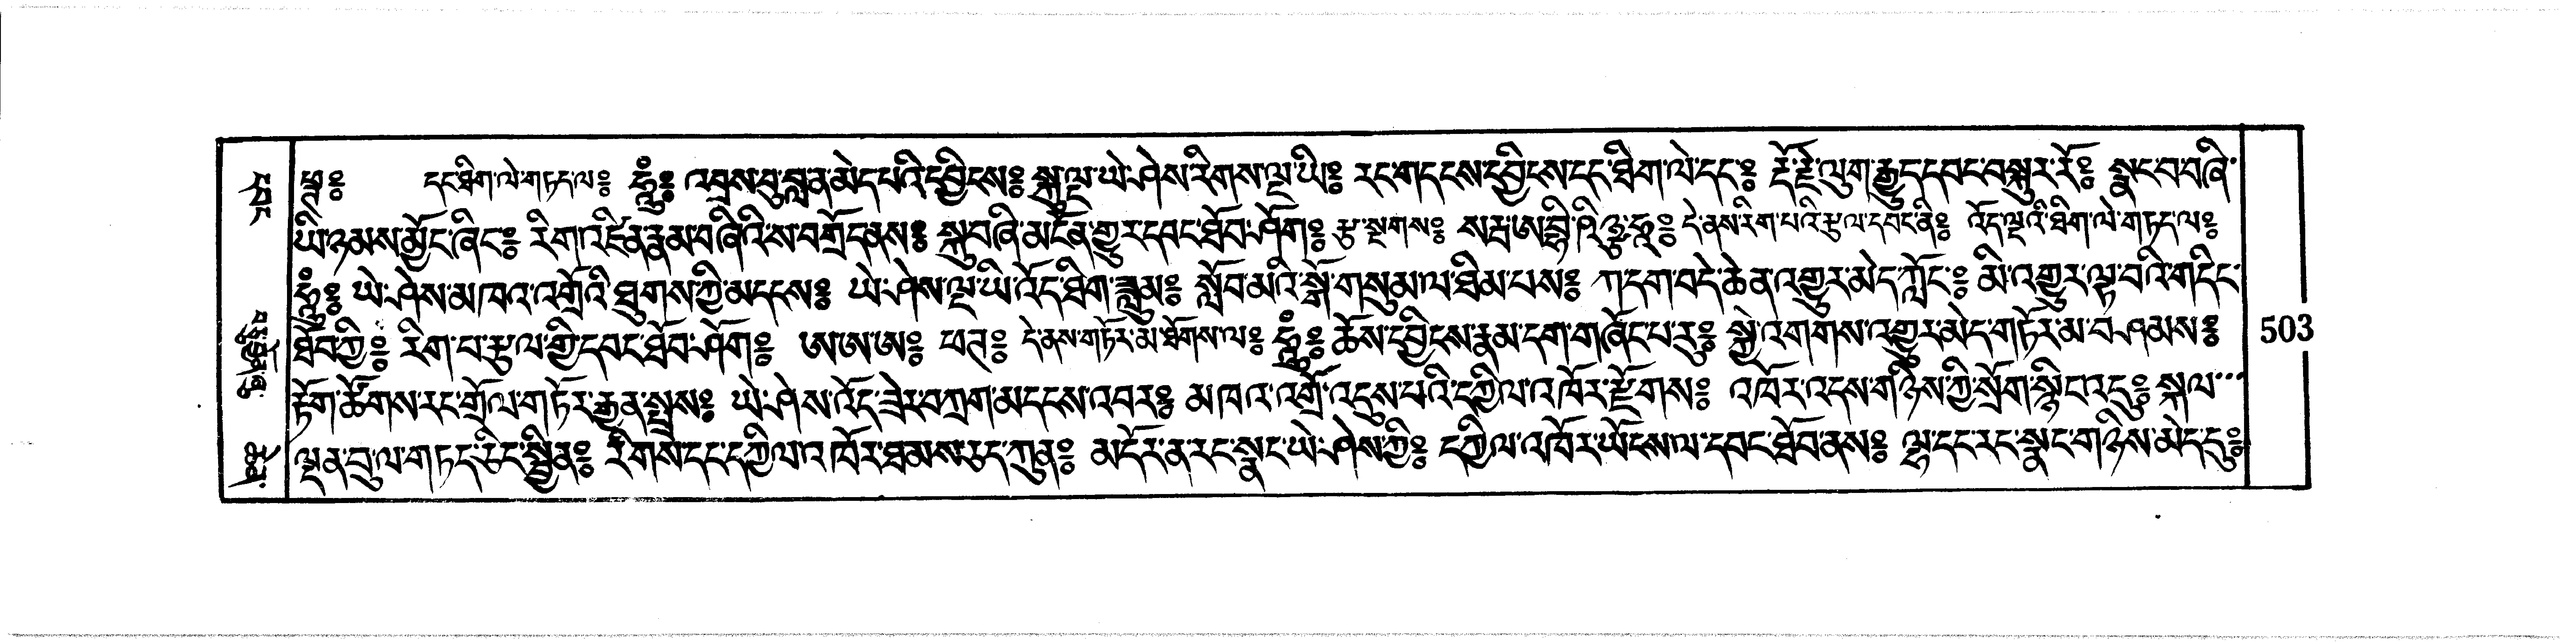 ཕཊ༔ དང་ཐིག་ལེ་གཏད་ལ༔ ཧཱུྃ༔ འབྲས་བུ་བླ་ན་མེད་པའི་དབྱིངས༔ སྐུ་ལྔ་ཡེ་ཤེས་རིགས་ལྔ་ཡི༔ རང་གདངས་དབྱིངས་དང་ཐིག་ལེ་དང༔ རྡོ་རྗེ་ལུག་རྒྱུད་དབང་བསྐུར་རོ༔ སྣང་བ་བཞི་
ཡི་ཉམས་མྱོང་ཞིང༔ རིག་འཛིན་རྣམ་བཞིའི་ས་བགྲོད་ནས༔ སྐུ་བཞི་མངོན་གྱུར་དབང་ཐོབ་ཤོག༔ རྩ་སྔགས༔ སརྦ་ཨ་བྷི་ཥིཉྩ་ཧཱུྃ༔ དེ་ནས་རིག་པའི་རྩལ་དབང་ནི༔ འོད་ལྔའི་ཐིག་ལེ་གཏད་ལ༔
ཧཱུྃ༔ ཡེ་ཤེས་མཁའ་འགྲོའི་ཐུགས་ཀྱི་མདངས༔ ཡེ་ཤེས་ལྔ་ཡི་འོད་ཐིག་ཟླུམ༔ སློབ་མའི་སྒོ་གསུམ་ལ་ཐིམ་པས༔ ཀ་དག་བདེ་ཆེན་འགྱུར་མེད་ཀློང༔ མི་འགྱུར་ལྟ་བའི་གདིང་
ཐོབ་ཀྱི༔ རིག་པ་རྩལ་གྱི་དབང་ཐོབ་ཤོག༔ ཨ་ཨ་ཨ༔ ཕཊ༔ དེ་ནས་གཏོར་མ་ཐོགས་ལ༔ ཧཱུྃ༔ ཆོས་དབྱིངས་རྣམ་དག་གཞོང་པ་རུ༔ སྐྱེ་འགགས་འགྱུར་མེད་གཏོར་མ་བཤམས༔
རྟོག་ཚོགས་རང་གྲོལ་གཏོར་རྒྱན་སྤྲས༔ ཡེ་ཤེས་འོད་ཟེར་བཀྲག་མདངས་འབར༔ མཁའ་འགྲོ་འདུས་པའི་དཀྱིལ་འཁོར་རྫོགས༔ འཁོར་འདས་གཉིས་ཀྱི་སྲོག་སྙིང་འདུ༔ སྐལ་
ལྡན་བུ་ལ་གཏད་ཅིང་སྦྱིན༔ རིགས་དང་དཀྱིལ་འཁོར་ཐམས་ཅད་ཀུན༔ མདོར་ན་རང་སྣང་ཡེ་ཤེས་ཀྱི༔ དཀྱིལ་འཁོར་ཡོངས་ལ་དབང་ཐོབ་ནས༔ ལྷ་དང་རང་སྣང་གཉིས་མེད་དུ༔
503